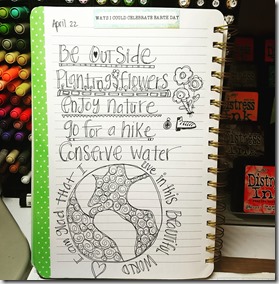 WAYS I COULD CELEBRATE EARTH DAY
April 22
Be Outside
Planting flowers
enjoy nature
go for a hike
Conserve water
I am glad that I live in this Beautiful WORLD
Distress
Ink
Distress
Distress